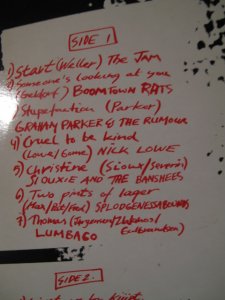 SIDE 1
1) Start (Weller) THE JAM
2) Someone's looking at you
(Geldof) BOOMTOWN RATS
3) Stupefaction (Parker)
GRAHAM PARKER & THE RUMOUR
4) Cruel to be kind
(Lowe/Gomm) NICK LOWE
5) Christine (Sioux/Severin)
SIOUXIE AND THE BANSHEES
6) Two pints of lager
SPLODGENESSABOUNDS
7) Thomas
LUMBAGO
SIDE 2.